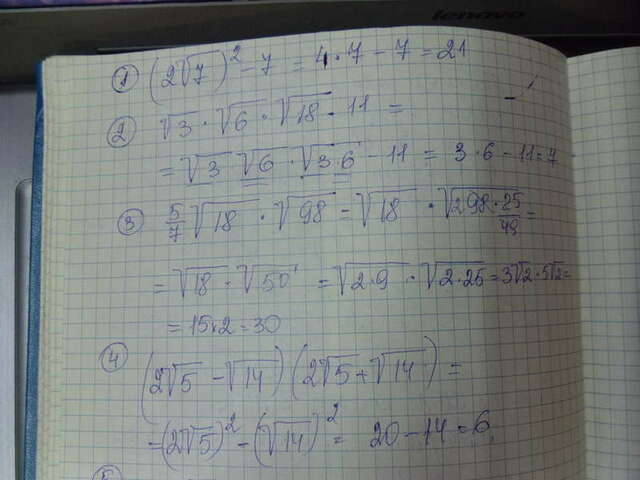 lenovo
① (2√7)² - 7 = 4·7 - 7 = 21
② √3 · √6 · √18 - 11 =
= √3 · √6 · √3·6 - 11 = 3·6 - 11 = 7
③ 5/7 √18 · √98 = √18 · √(298·25/49) =
= √18 · √50 = √2·9 · √2·25 = 3√2·5√2 =
= 15×2 = 30
④ (2√5 - √14)(2√5 + √14) =
= (2√5)² - (√14)² = 20 - 14 = 6
⑤